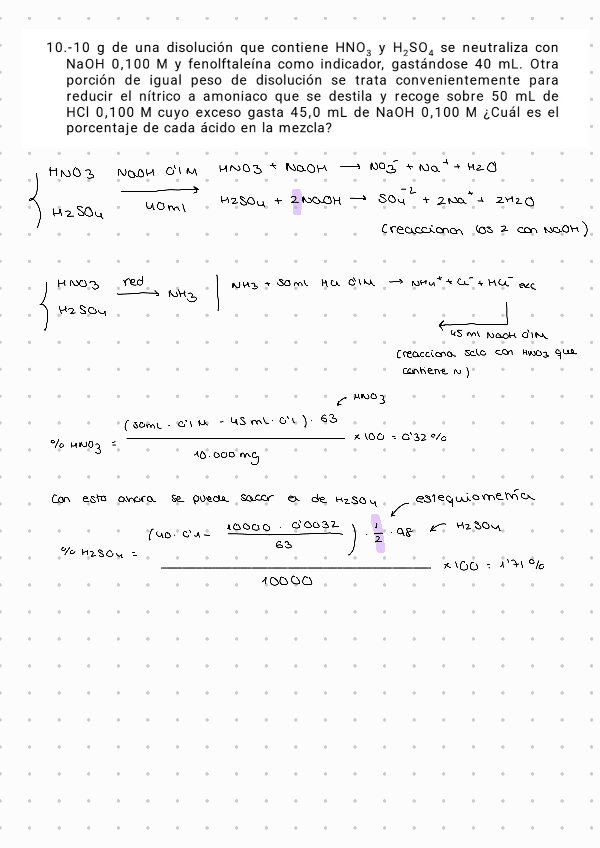 10.-10 g de una disolución que contiene HNO₃ y H₂SO₄ se neutraliza con
NaOH 0,100 M y fenolftaleína como indicador, gastándose 40 mL. Otra
porción de igual peso de disolución se trata convenientemente para
reducir el nítrico a amoniaco que se destila y recoge sobre 50 mL de
HCl 0,100 M cuyo exceso gasta 45,0 mL de NaOH 0,100 M ¿Cuál es el
porcentaje de cada ácido en la mezcla?
HNO3 NaOH 0'1M HNO3 + NaOH → NO3⁻ + Na⁺ + H2O
H2SO4 40ml H2SO4 + 2NaOH → SO4⁻² + 2Na⁺ + 2H2O
(reaccionan los 2 con NaOH)
HNO3 red → NH3 | NH3 + 50ml HCl 0'1M → NH4⁺ + Cl⁻ + HCl⁻ exc
H2SO4
45 ml NaOH 0'1M
(reacciona solo con HNO3 que
contiene N)
HNO3
% HNO3 = (50mL · 0'1 M - 45 mL · 0'1) · 63
10.000 mg
x 100 = 0'32 %
Con esto ahora se puede sacar el de H2SO4 estequiometría
% H2SO4 = (40 · 0'1 - 10000 · 0'0032
63
) · 1
2
· 98 ← H2SO4
10000
x 100 = 1'71 %